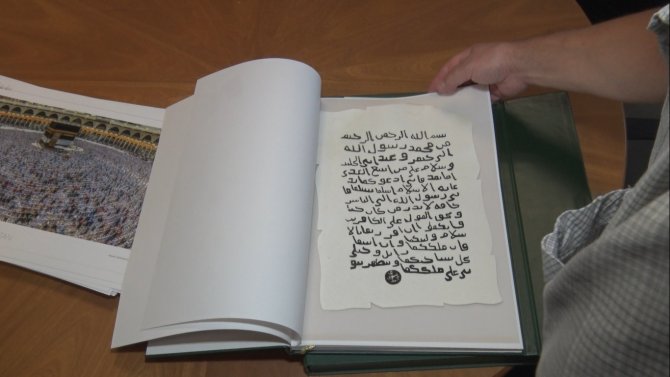 بسم الله الرحمن الرحيم
من محمد رسول الله
الى جيفر وعبد ابني الجلند
سلام على من اتبع الهدى
اما بعد فاني ادعوكما بد
عاية الاسلام اسلما تسلما فا
ني رسول الله الى الناس
كافة لانذر من كان حيا
ويحق القول على الكافرين
وانكما ان اقررتما بالا
سلام وليتكما وان ابيتما
فان ملككما زايل وخيلي
تحل بساحتكما وتظهر نبو
تي على ملككما